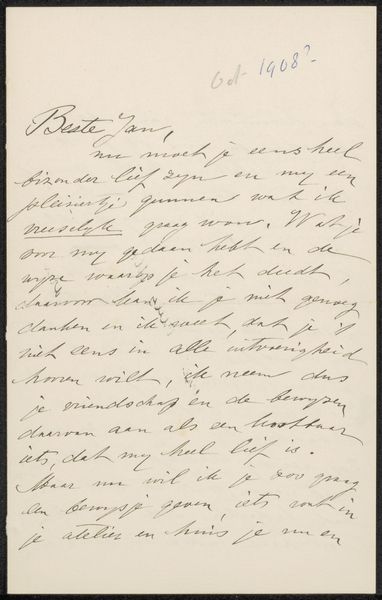 Oct 1908?
Beste Jan,
nu moet je eens heel
bizonder lief zyn en my een
pleiziertje gunnen wat ik
vreeselyk graag wou. Wat je
voor my gedaan hebt en de
wijze waarop je het deedt,
daarvoor kan ik je niet genoeg
danken en ik weet, dat je 't
niet eens in alle uitvoerigheid
hooren wilt, ik neem dus
je vriendschap en de bewyzen
daarvan aan als een kostbaar
iets, dat my heel lief is.
Maar nu wil ik je zoo graag
een bewysje geven, iets wat in
je atelier en huis je nu en